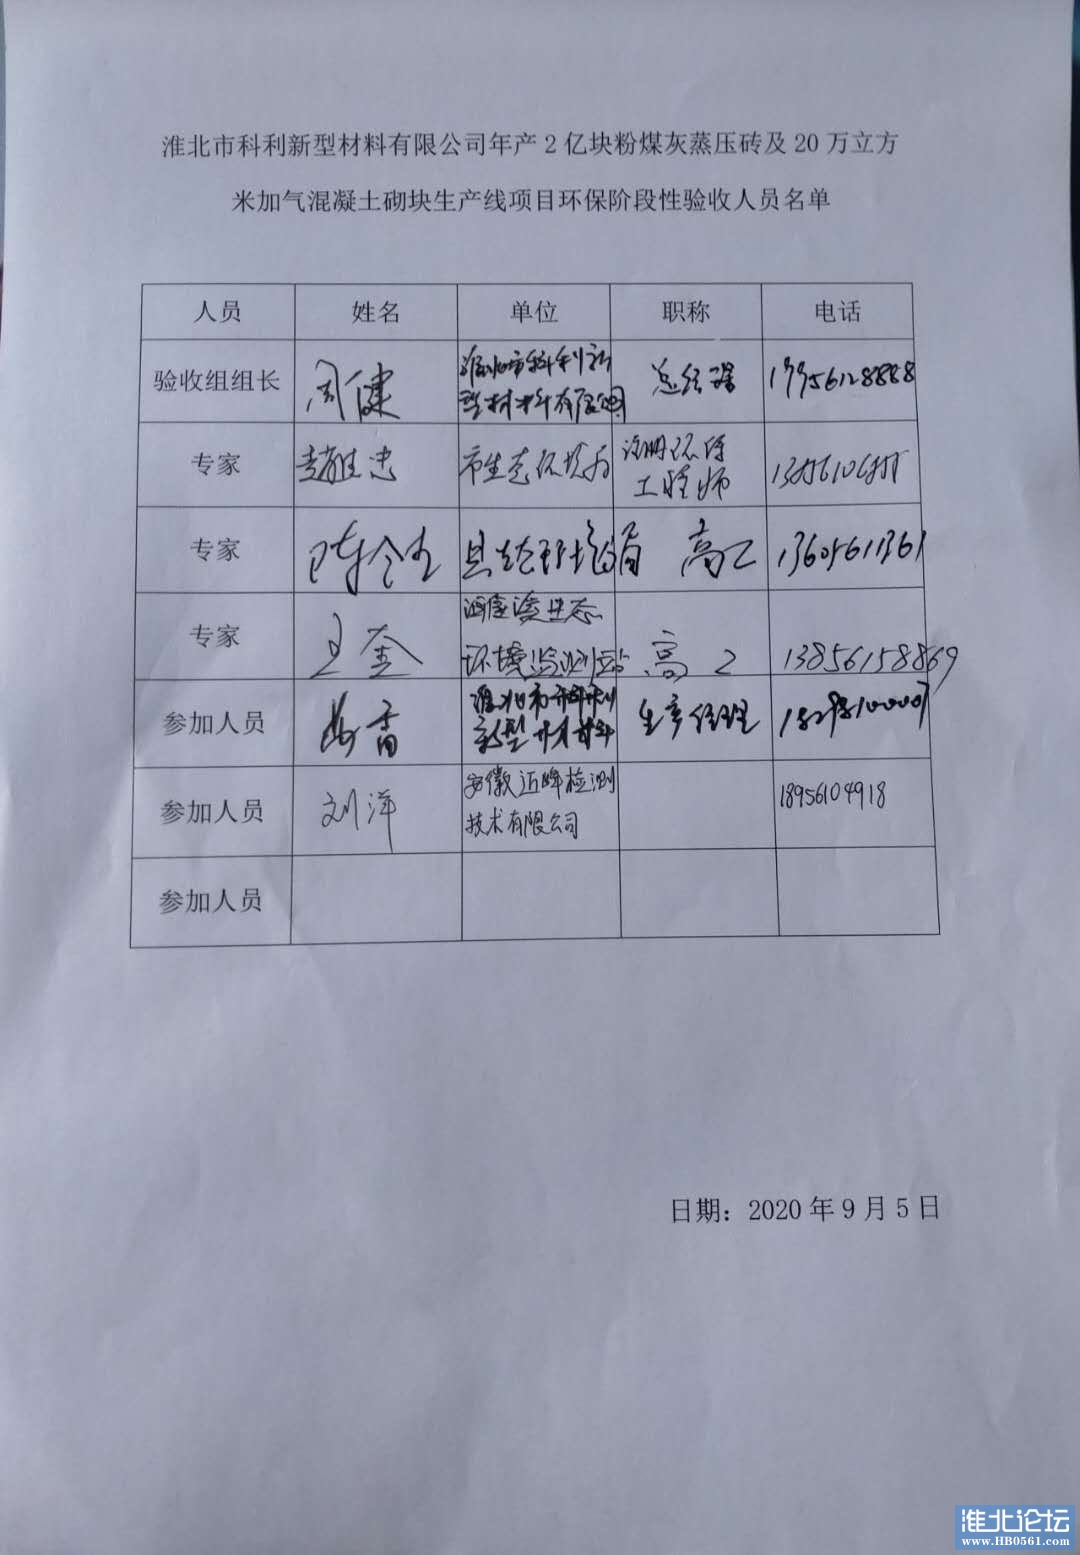 淮北市科利新型材料有限公司年产2亿块粉煤灰蒸压砖及20万立方
米加气混凝土砌块生产线项目环保阶段性验收人员名单
人员 姓名 单位 职称 电话
验收组组长 周健 淮北市科利新 总经理
型材料有限公司
专家 市生态环境局 注册环保
工程师
专家 县生态环境局 高工 13605611361
专家 王奎 生态
环境监测站 高工 13856158869
参加人员 淮北市科利 生产经理
新型材料
参加人员 刘洋 安徽 检测 18956104918
技术有限公司
参加人员
日期：2020年9月5日
淮北论坛
www.HB0561.com